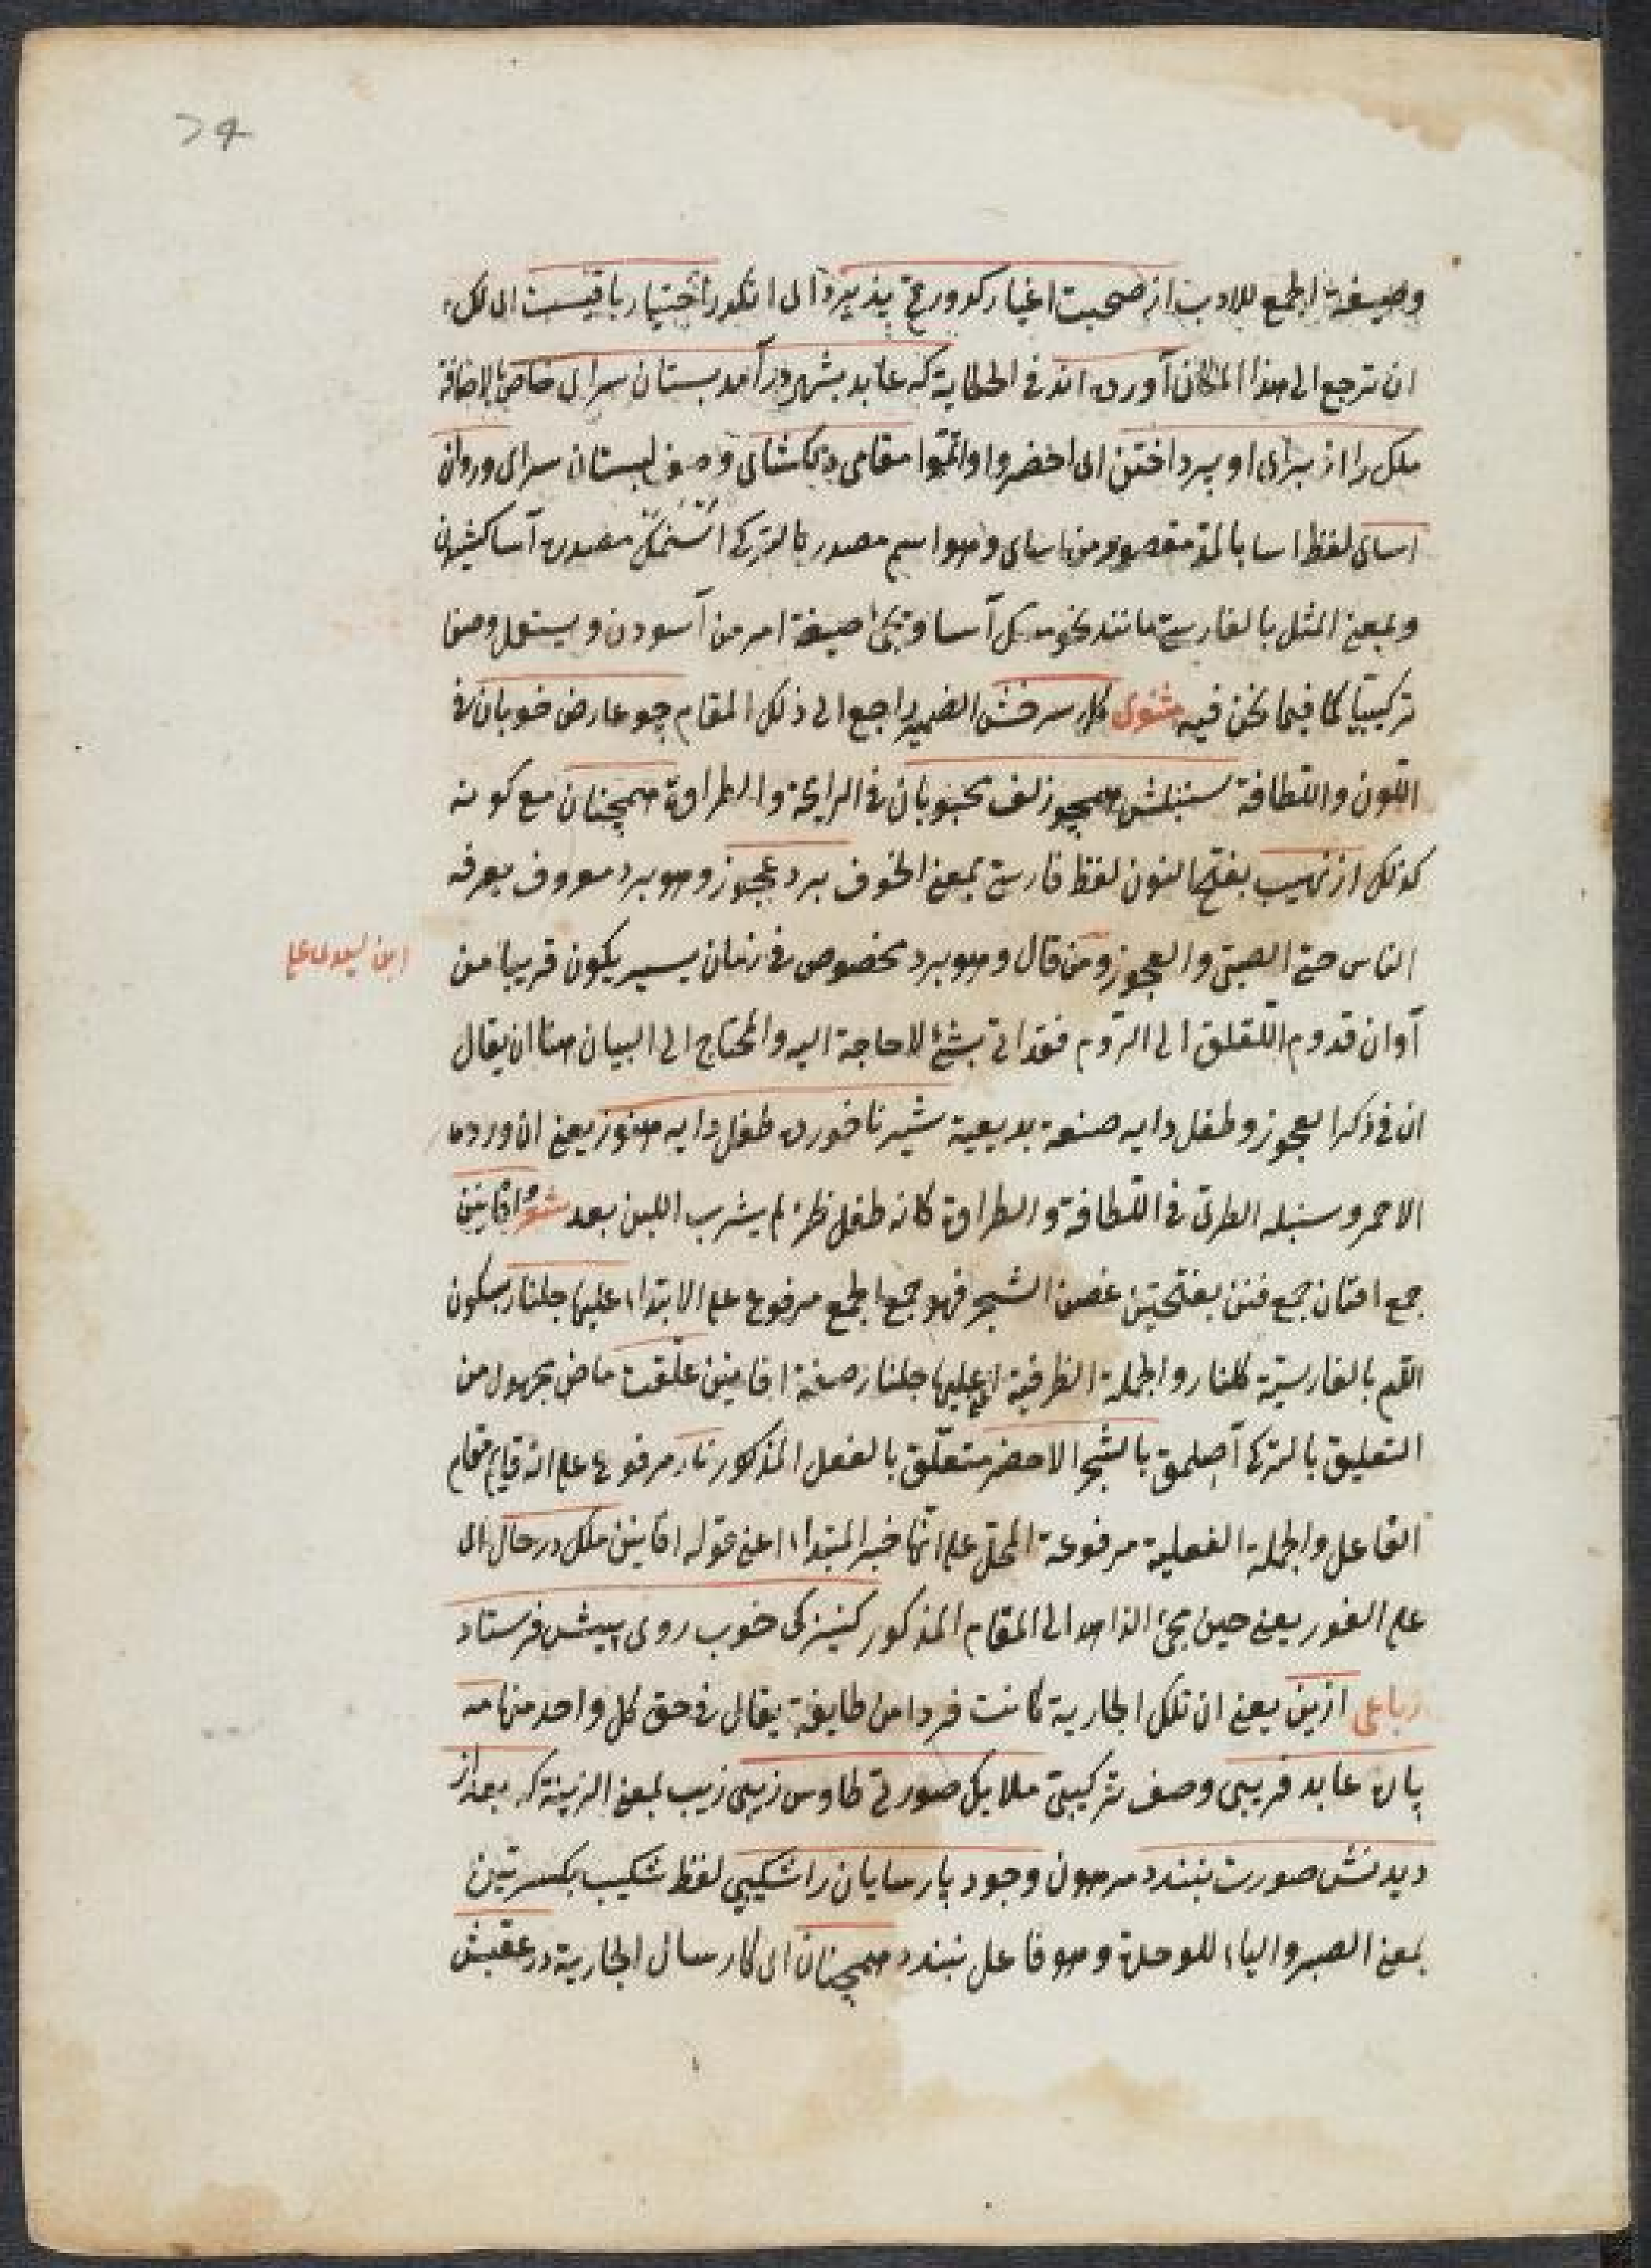 وصيغة الجمع للادب از صحبت اغيار كدورتى پذيرد اى ان تكدر اختيار باقيست اى لك
ان ترجع الى هذا المكان آورده اند فى الحكاية كه عابد بشهر درآمد بستان سراى خاص بالاضافة
ملك را از براى او بپرداختند اى احضروا واتموا مقامى دلكشاى وصف لبستان سراى وروان
اساى لفظ اسا بالمد مقصور من اساى وهو اسم مصدر بالتركى معبده آسا
وبمعنى المثل بالفارسى مانند نحو آسا وتجئ صيغة امر من آسودن ويستعمل وصفا
تركيبيا كما فيما نحن فيه مثنوى گل سرخش الضمير راجع الى ذلك المقام چو عارض خوبان فى
اللون واللطافة سنبلش همچو زلف محبوبان فى الرايحة والطراوة همچنان مع كونه
كذلك از نهيب بفتح النون لفظ فارسى بمعنى الخوف برد عجوز وهو برد معروف يعرفه
الناس حتى الصبى والعجوز ومن قال وهو برد مخصوص فى زمان يسير يكون قريبا من
آوان قدوم اللقلق الى الروم فقد اتى بشئ لا حاجة اليه والمحتاج الى البيان هنا ان يقال
ان فى ذكر العجوز وطفل دايه صنعة بديعية شير ناخورده طفل دايه هنوز يعنى ان ورده
الاحمر وسنبله الطرى فى اللطافة والطراوة كانه طفل ظئر لم يشرب اللبن بعد شعر افانين
جمع افنان جمع فنن بفتحتين غصن الشجر فهو جمع الجمع مرفوع على الابتداء عليها جلنار بسكون
اللام بالفارسية گلنار والجملة الظرفية اى عليها جلنار صفة افانين علقت ماض مجهول من
التعليق بالتركى آصلمق بالشجر الاخضر متعلق بالفعل المذكور نار مرفوع على انه قايم مقام
الفاعل والجملة الفعلية مرفوعة المحل على انها خبر المبتداء اعنى قوله افانين ملك در حال اى
على الفور يعنى حين مجئ الزاهد الى المقام المذكور كنيزكى خوب روى پيشش فرستاد
رباعى ازين يعنى ان تلك الجارية كانت فردا من طايفة يقال فى حق كل واحد منها مه
پاره عابد فريبى وصف تركيبى ملايك صورتى طاوس زيبى زيب بمعنى الزينة كه بعد از
ديدنش صورت نبندد مرهون وجود پارسايان را شكيبى لفظ شكيب بكسرتين
بمعنى الصبر والياء للوحدة وهو فاعل نبندد همچنان اى كارسال الجارية در عقبش